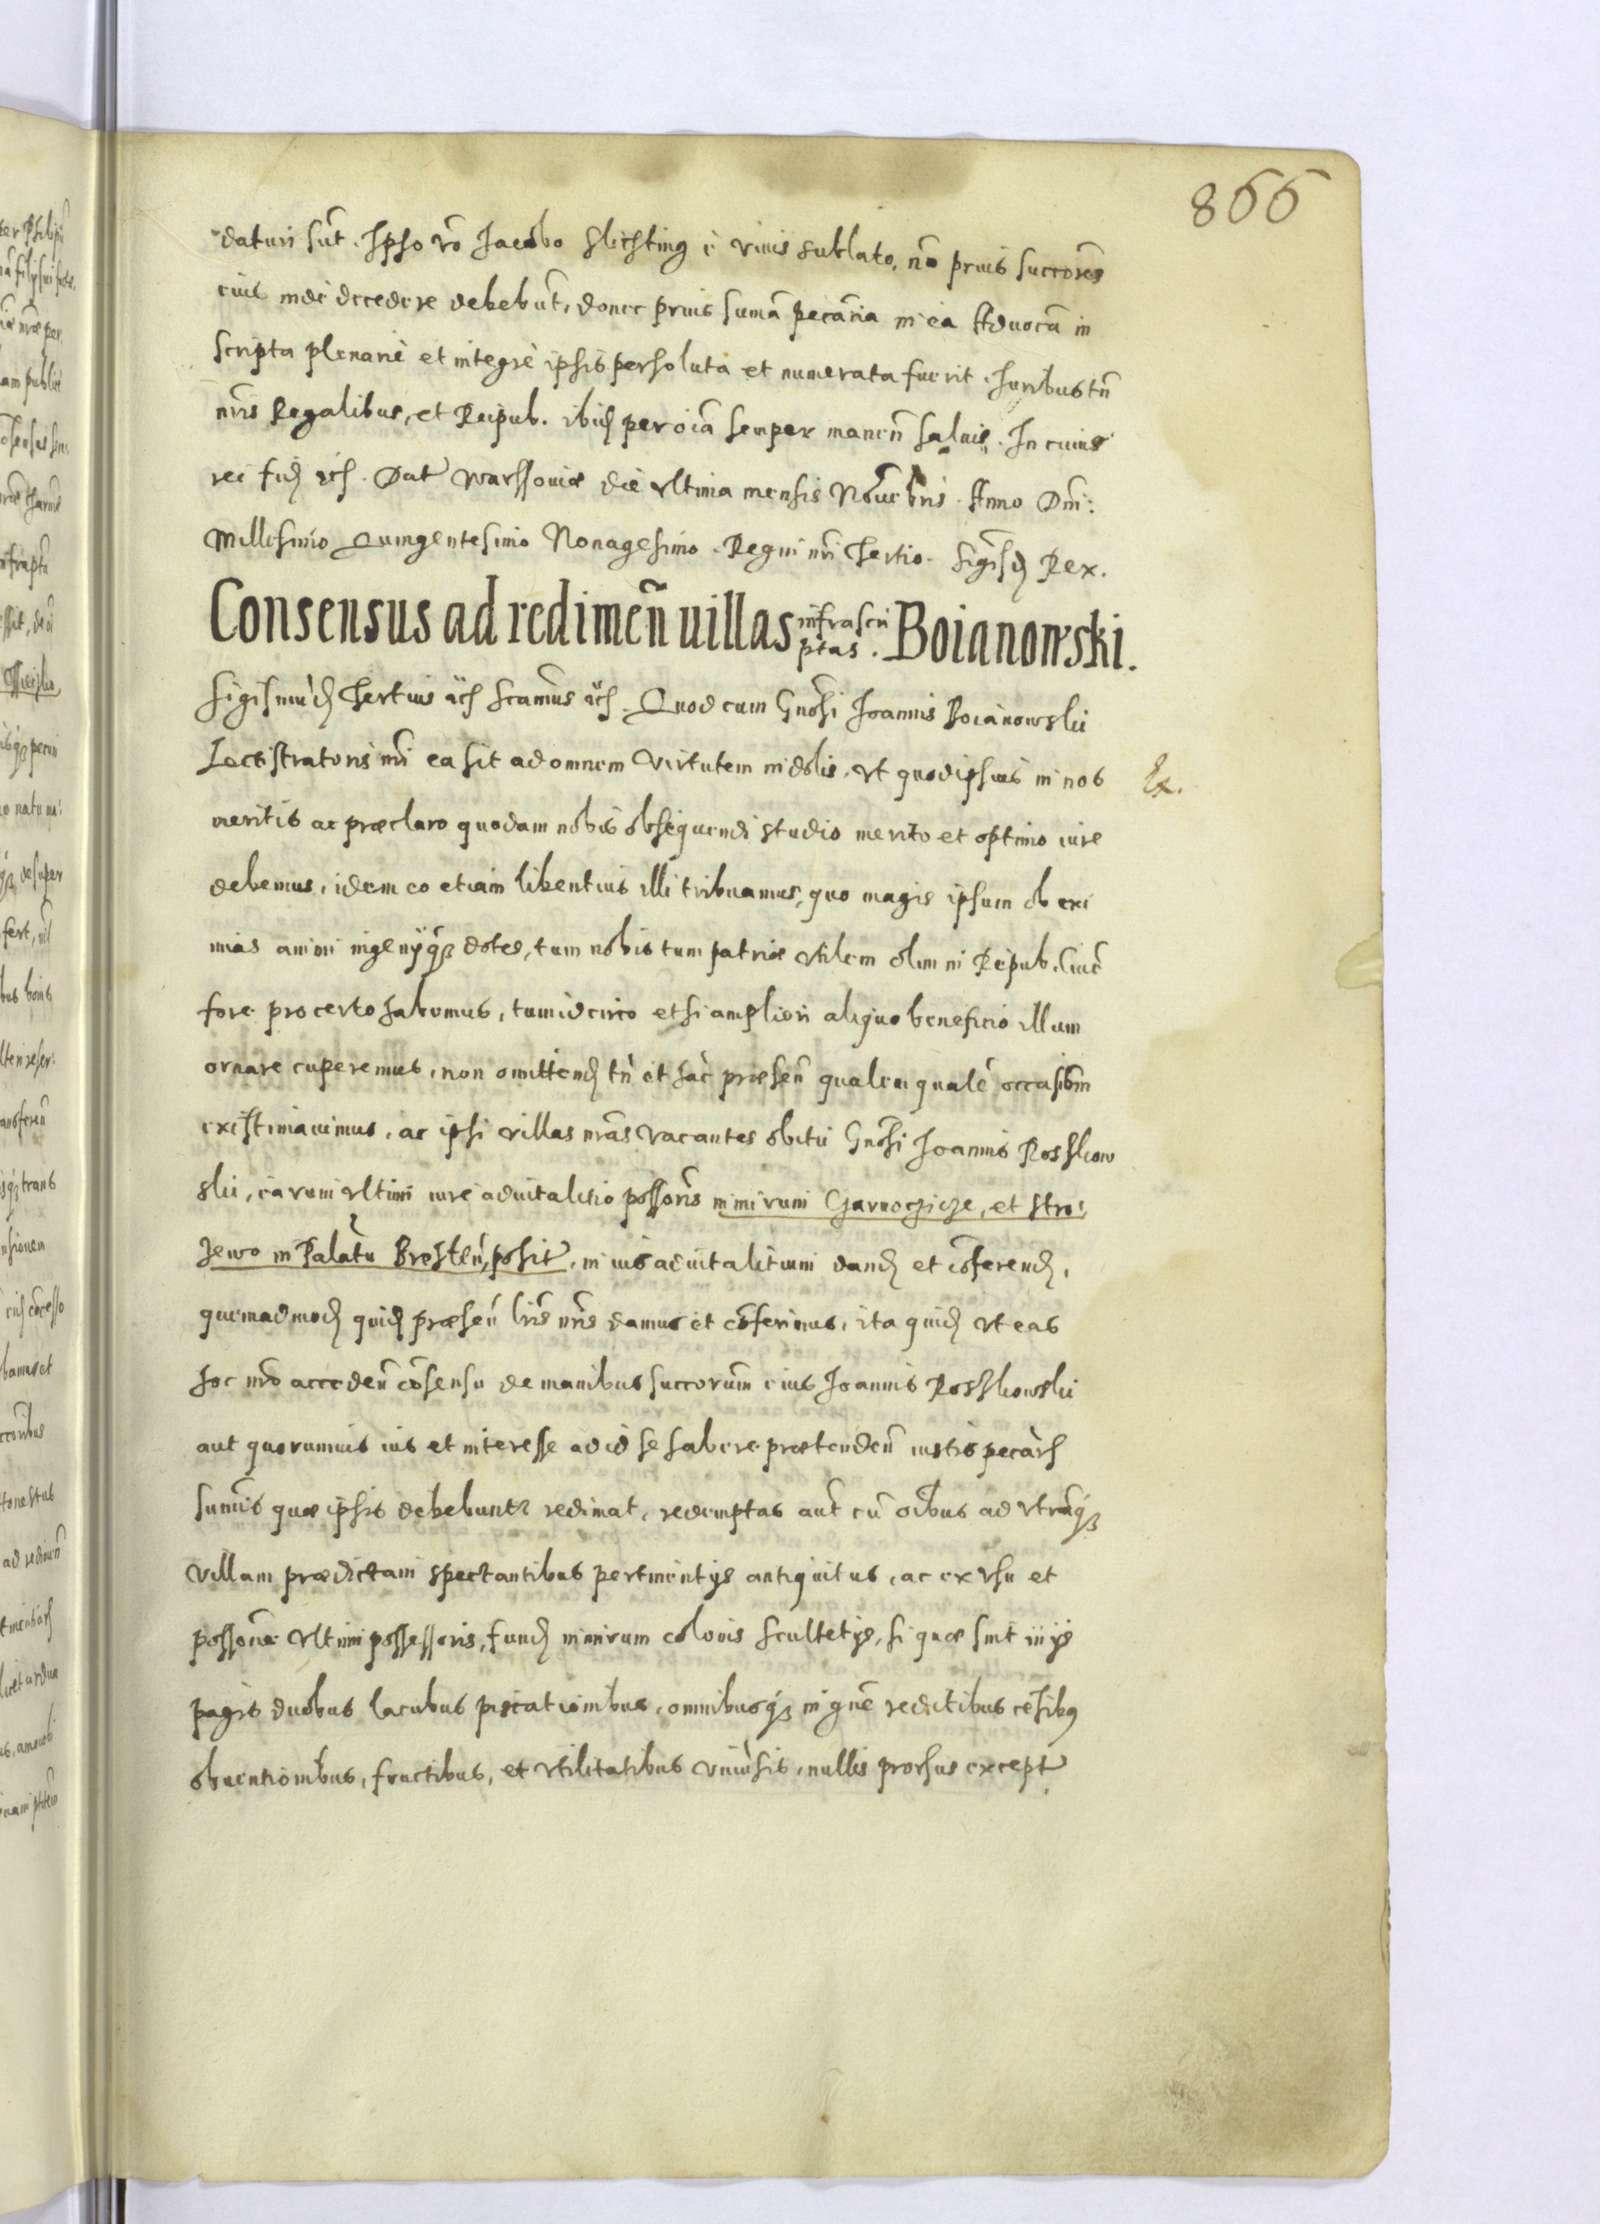 866
daturi sūt. Ipso vō Jacobo Slichting è viuis sublato, nō prius succores
eius inde decedere debebūt, donec prius sumā pecūria in ea Aduocā in
scripta plenariè et integrè ipsis persoluta et numerata fuerit. Juribus tñ
nris Regalibus, et Reipub. ibid per oīa semper manen̄ saluis. In cuius
rei fid etc. Dat Warssouiæ die vltima mensis Nouēbris. Anno Dni:
Millesimo Quingentesimo Nonagesimo. Regni nri Tertio. Sigism Rex.
Consensus ad redimen̄ uillas infrascri
ptas. Boianowski.
Sigismud Tertius etc scamus etc. Quod cum Gnosi Joannis Boianowskii
Lectistratoris nri ea sit ad omnem virtutem indolis, vt quod ipsius in nos
Ex.
meritis ac præclaro quodam nobis obsequendi studio merito et optimo iure
debemus, idem eo etiam libentius illi tribuamus, quo magis ipsum ob exi
mias animi ingenijq dotes, tum nobis tum patriæ vtilem olim in Repub. ciuē
fore pro certo habemus, tum idcirco etsi ampliori aliquo beneficio illum
ornare cuperemus, non omittend tn̄ et hac præsen̄ qualemqualē occasiōm
existimauimus, ac ipsi villas nrās vacantes obitu Gnosi Joannis Rosskow
skii, earum vltimi iure aduitalitio possoris nimirum Garnoczicze, et Stro:
zewo in Palatu Bresten̄, posit, in ius aduitalitium dand et cōferend,
quemadmod quid præsen̄ lris nris damus et cōferimus, ita quid vt eas
hoc nrō acceden̄ cōsensu de manibus succorum eius Joannis Rosskowskii
aut quorumuis ius et interesse ad id se habere prætenden̄ iustis pecūrs
sumis quæ ipsis debebuntr redimat, redemptas aut cū oībus ad vtrāq
villam prædictam spectantibus pertinentijs antiquitus, ac ex vsu et
possone vltimi possessoris, fund nimirum colonis scultetijs, si quæ sint in ijs
pagis duobus lacubus piscationibus, omnibusq in gnē reditibus cēsibq
obuentionibus, fructibus, et vtilitatibus vniuersis, nullis prorsus except